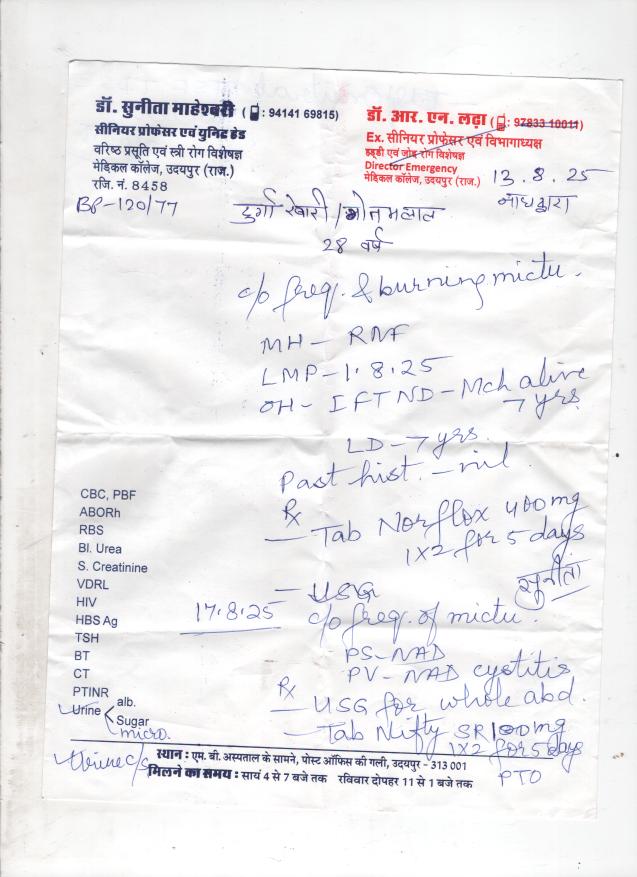 डॉ. सुनीता माहेश्वरी (: 94141 69815)
सीनियर प्रोफेसर एवं युनिट हेड
वरिष्ठ प्रसूति एवं स्त्री रोग विशेषज्ञ
मेडिकल कॉलेज, उदयपुर (राज.)
रजि. नं. 8458
डॉ. आर. एन. लढ़ा (: 97833 10011)
Ex. सीनियर प्रोफेसर एवं विभागाध्यक्ष
हड्डी एवं जोड़ रोग विशेषज्ञ
Director Emergency
मेडिकल कॉलेज, उदयपुर (राज.)
13.8.25
नाथद्वारा
BP-120/77
दुर्गा रेबारी /
28 वर्ष
c/o freq. & burning mictu.
MH - RMF
LMP - 1.8.25
OH - I FTND - Mch alive
7 yrs
LD - 7 yrs.
Past hist. - nil
Rx
- Tab Norflox 400mg
1X2 for 5 days
- USG
सुनीता
17.8.25 c/o freq. of mictu.
PS-NAD
PV-NAD cystitis
Rx
- USG for whole abd.
- Tab Nifty SR 100mg
1X2 for 5 days
PTO
CBC, PBF
ABORh
RBS
Bl. Urea
S. Creatinine
VDRL
HIV
HBS Ag
TSH
BT
CT
PTINR
Urine alb.
Sugar
micro.
Urine c/s
स्थान : एम. बी. अस्पताल के सामने, पोस्ट ऑफिस की गली, उदयपुर - 313 001
मिलने का समय : सायं 4 से 7 बजे तक रविवार दोपहर 11 से 1 बजे तक